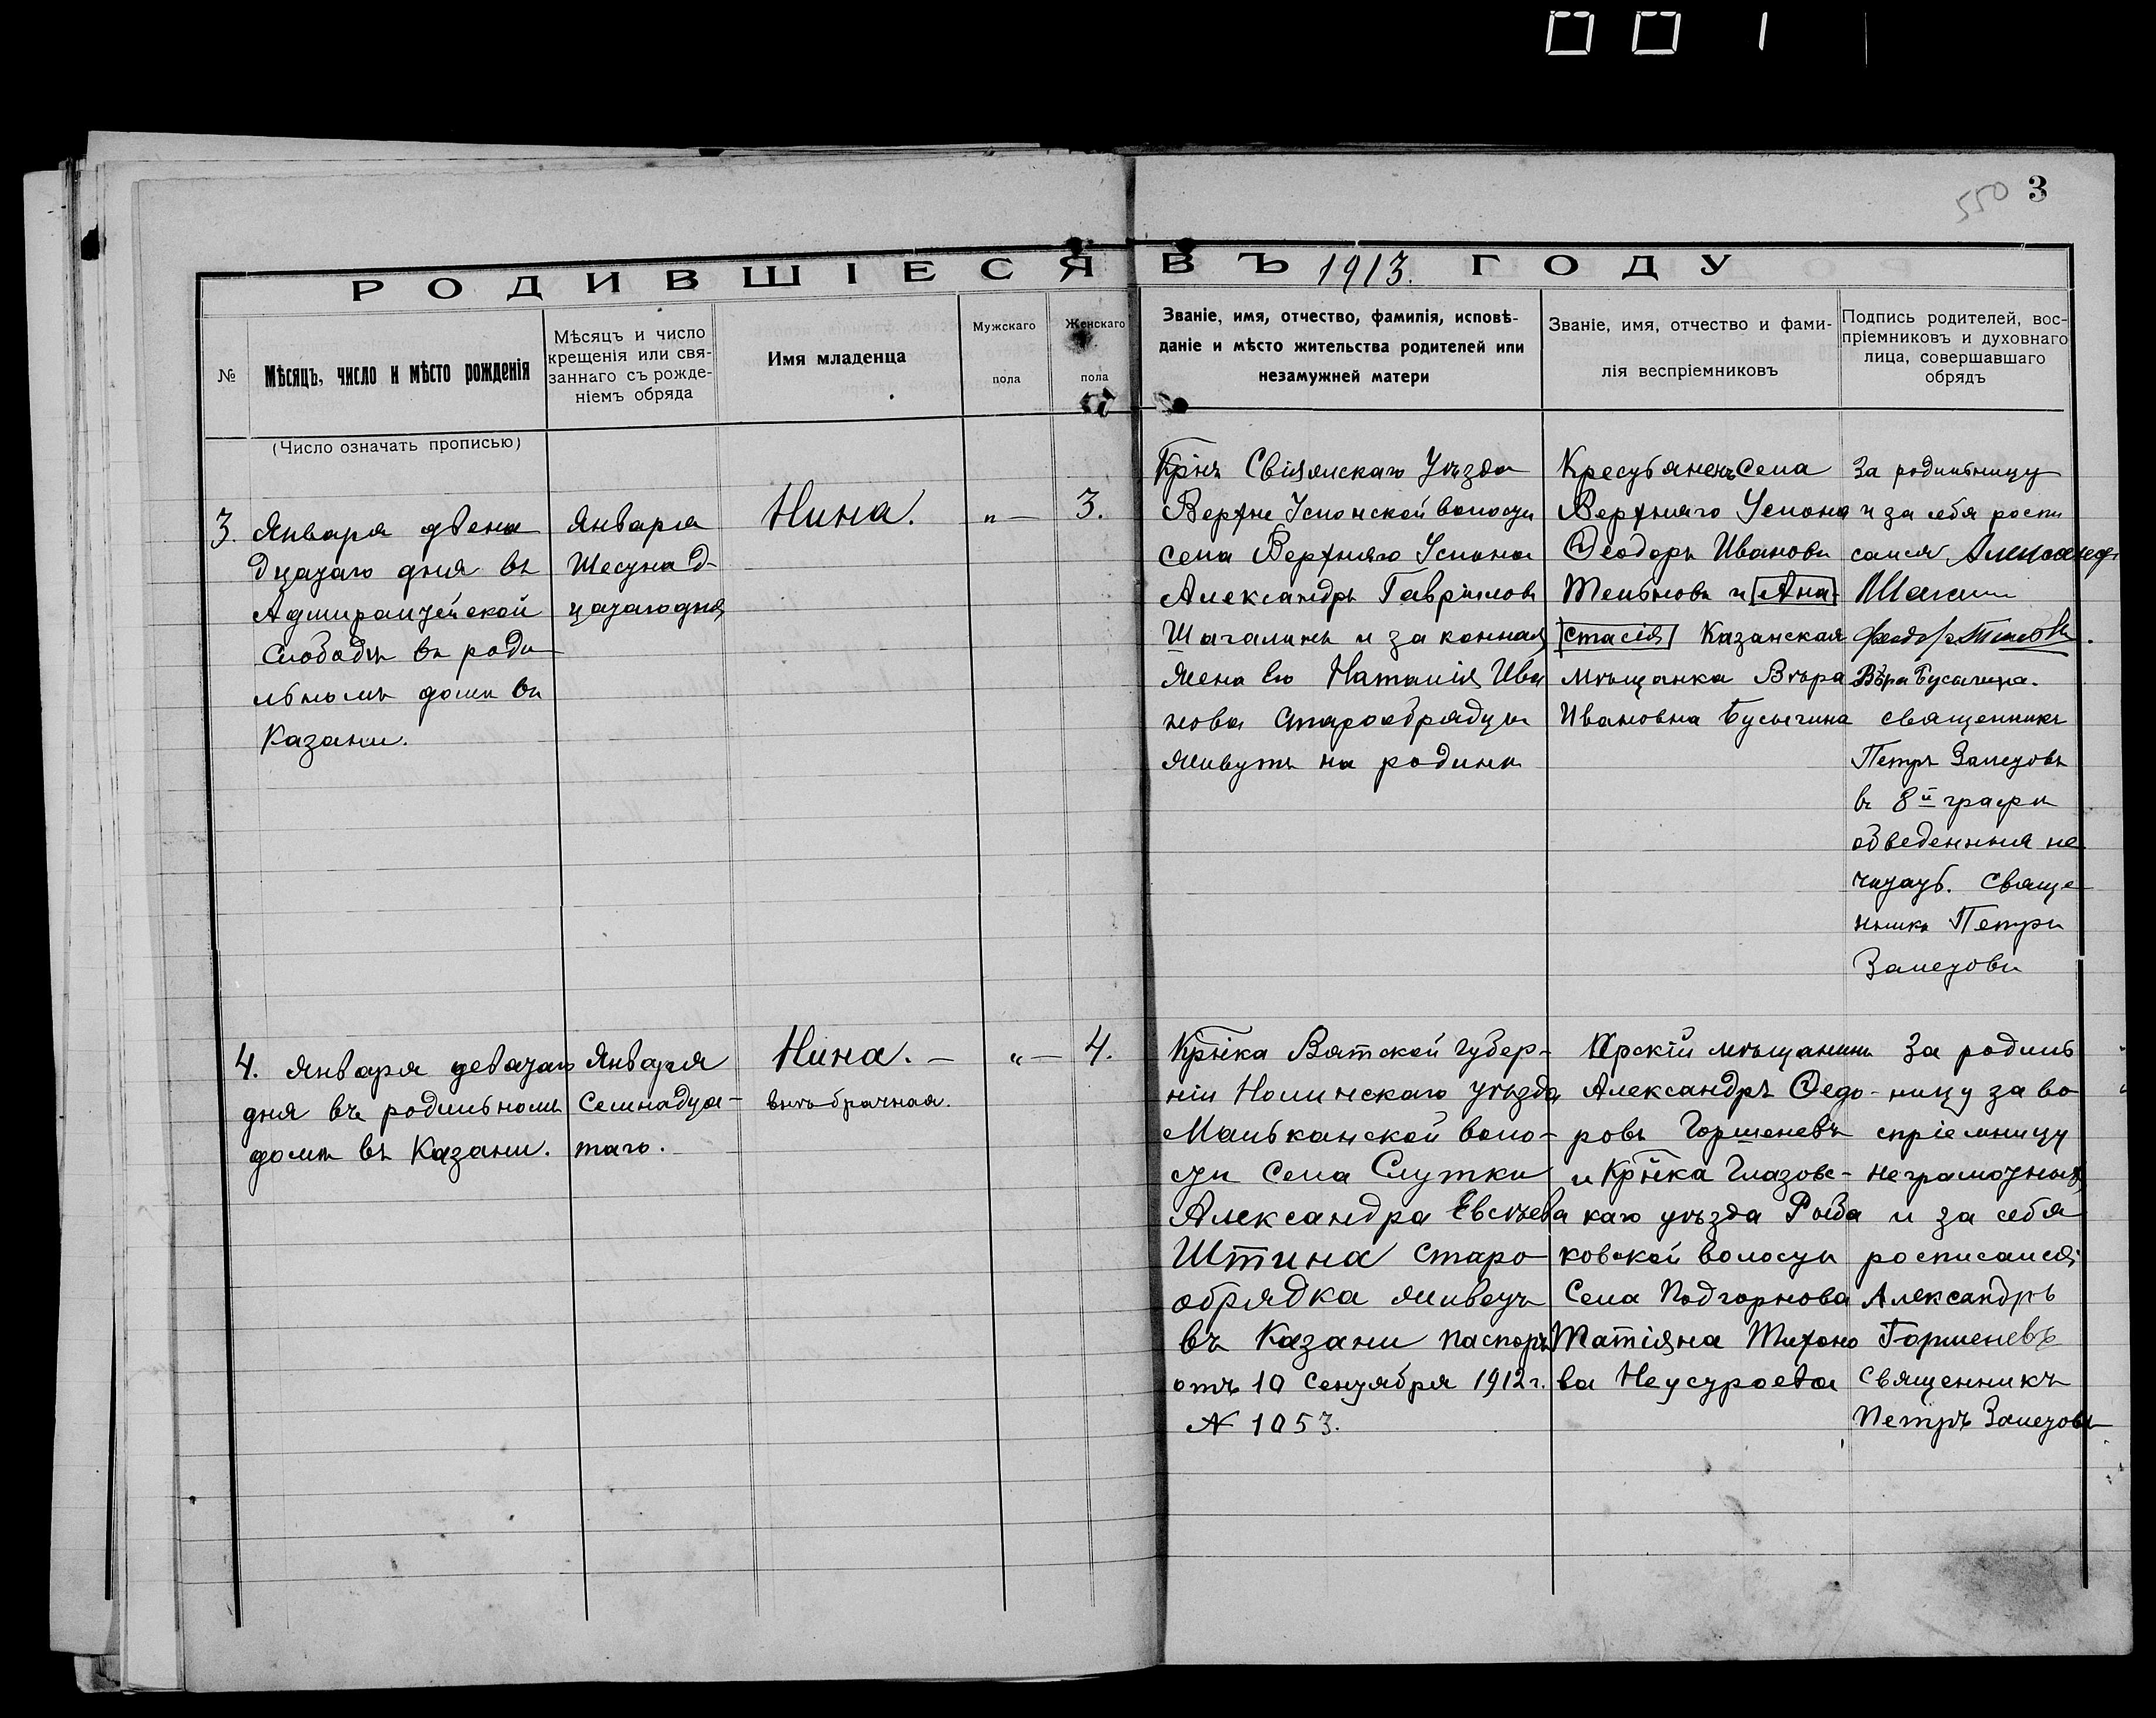 001
550 3
РОДИВШІЕСЯ ВЪ 1913. ГОДУ
№
Мѣсяцъ, число и мѣсто рожденія
Мѣсяцъ и число
крещенія или свя-
заннаго съ рожде-
ніемъ обряда
Имя младенца
Мужскаго
пола
Женскаго
пола
Званіе, имя, отчество, фамилія, исповѣ-
даніе и мѣсто жительства родителей или
незамужней матери
Званіе, имя, отчество и фами-
лія веспріемниковъ
Подпись родителей, вос-
пріемниковъ и духовнаго
лица, совершавшаго
обрядъ
(Число означать прописью)
3. Января двена
дцатаго дня въ
Адмиралтейской
Слободѣ въ роди
льномъ доме въ
Казани.
Января
Шестнад-
цатаго дня
Нина.
„ —
3.
Крнъ Свіяжскаго Уѣзда
Верхне Услонской волости
села Верхняго Услона
Александръ Гавриловъ
Шагалинъ и законная
жена его Наталія Ива
нова Старообрядцы
живутъ на родине
Крестьяненъ Села
Верхняго Услона
Ѳеодоръ Ивановъ
Тельновъ и Ана
стасія Казанская
мѣщанка Вѣра
Ивановна Бусыгина
За родильницу
и за себя роспи
сался Александръ
Вѣра Бусыгина.
священникъ
Петръ Залетовъ
въ 8й графе
обведенныя не
читать. Свяще
нникъ Петръ
Залетовъ
4. Января девятаго
дня въ родильномъ
доме въ Казани.
Января
Семнадца-
таго.
Нина. —
внѣбрачная.
„ —
4.
Крнка Вятской губер-
ніи Нолинскаго уѣзда
Малканской воло-
сти Села Слутки
Александра Евсѣева
Штина старо
обрядка живетъ
въ Казани паспортъ
отъ 10 Сентября 1912 г.
№ 1053.
Арскій мѣщанинъ
Александръ Ѳедо-
ровъ Горшеневъ
и Крнка Глазовс-
каго уѣзда Рыба
ковской волости
Села Подгорнова
Татіяна Тихоно
ва Неустроева
За родиль
ницу за во
спріемницу
неграмотныя
и за себя
росписался
Александръ
Горшеневъ
Священникъ
Петръ Залетовъ